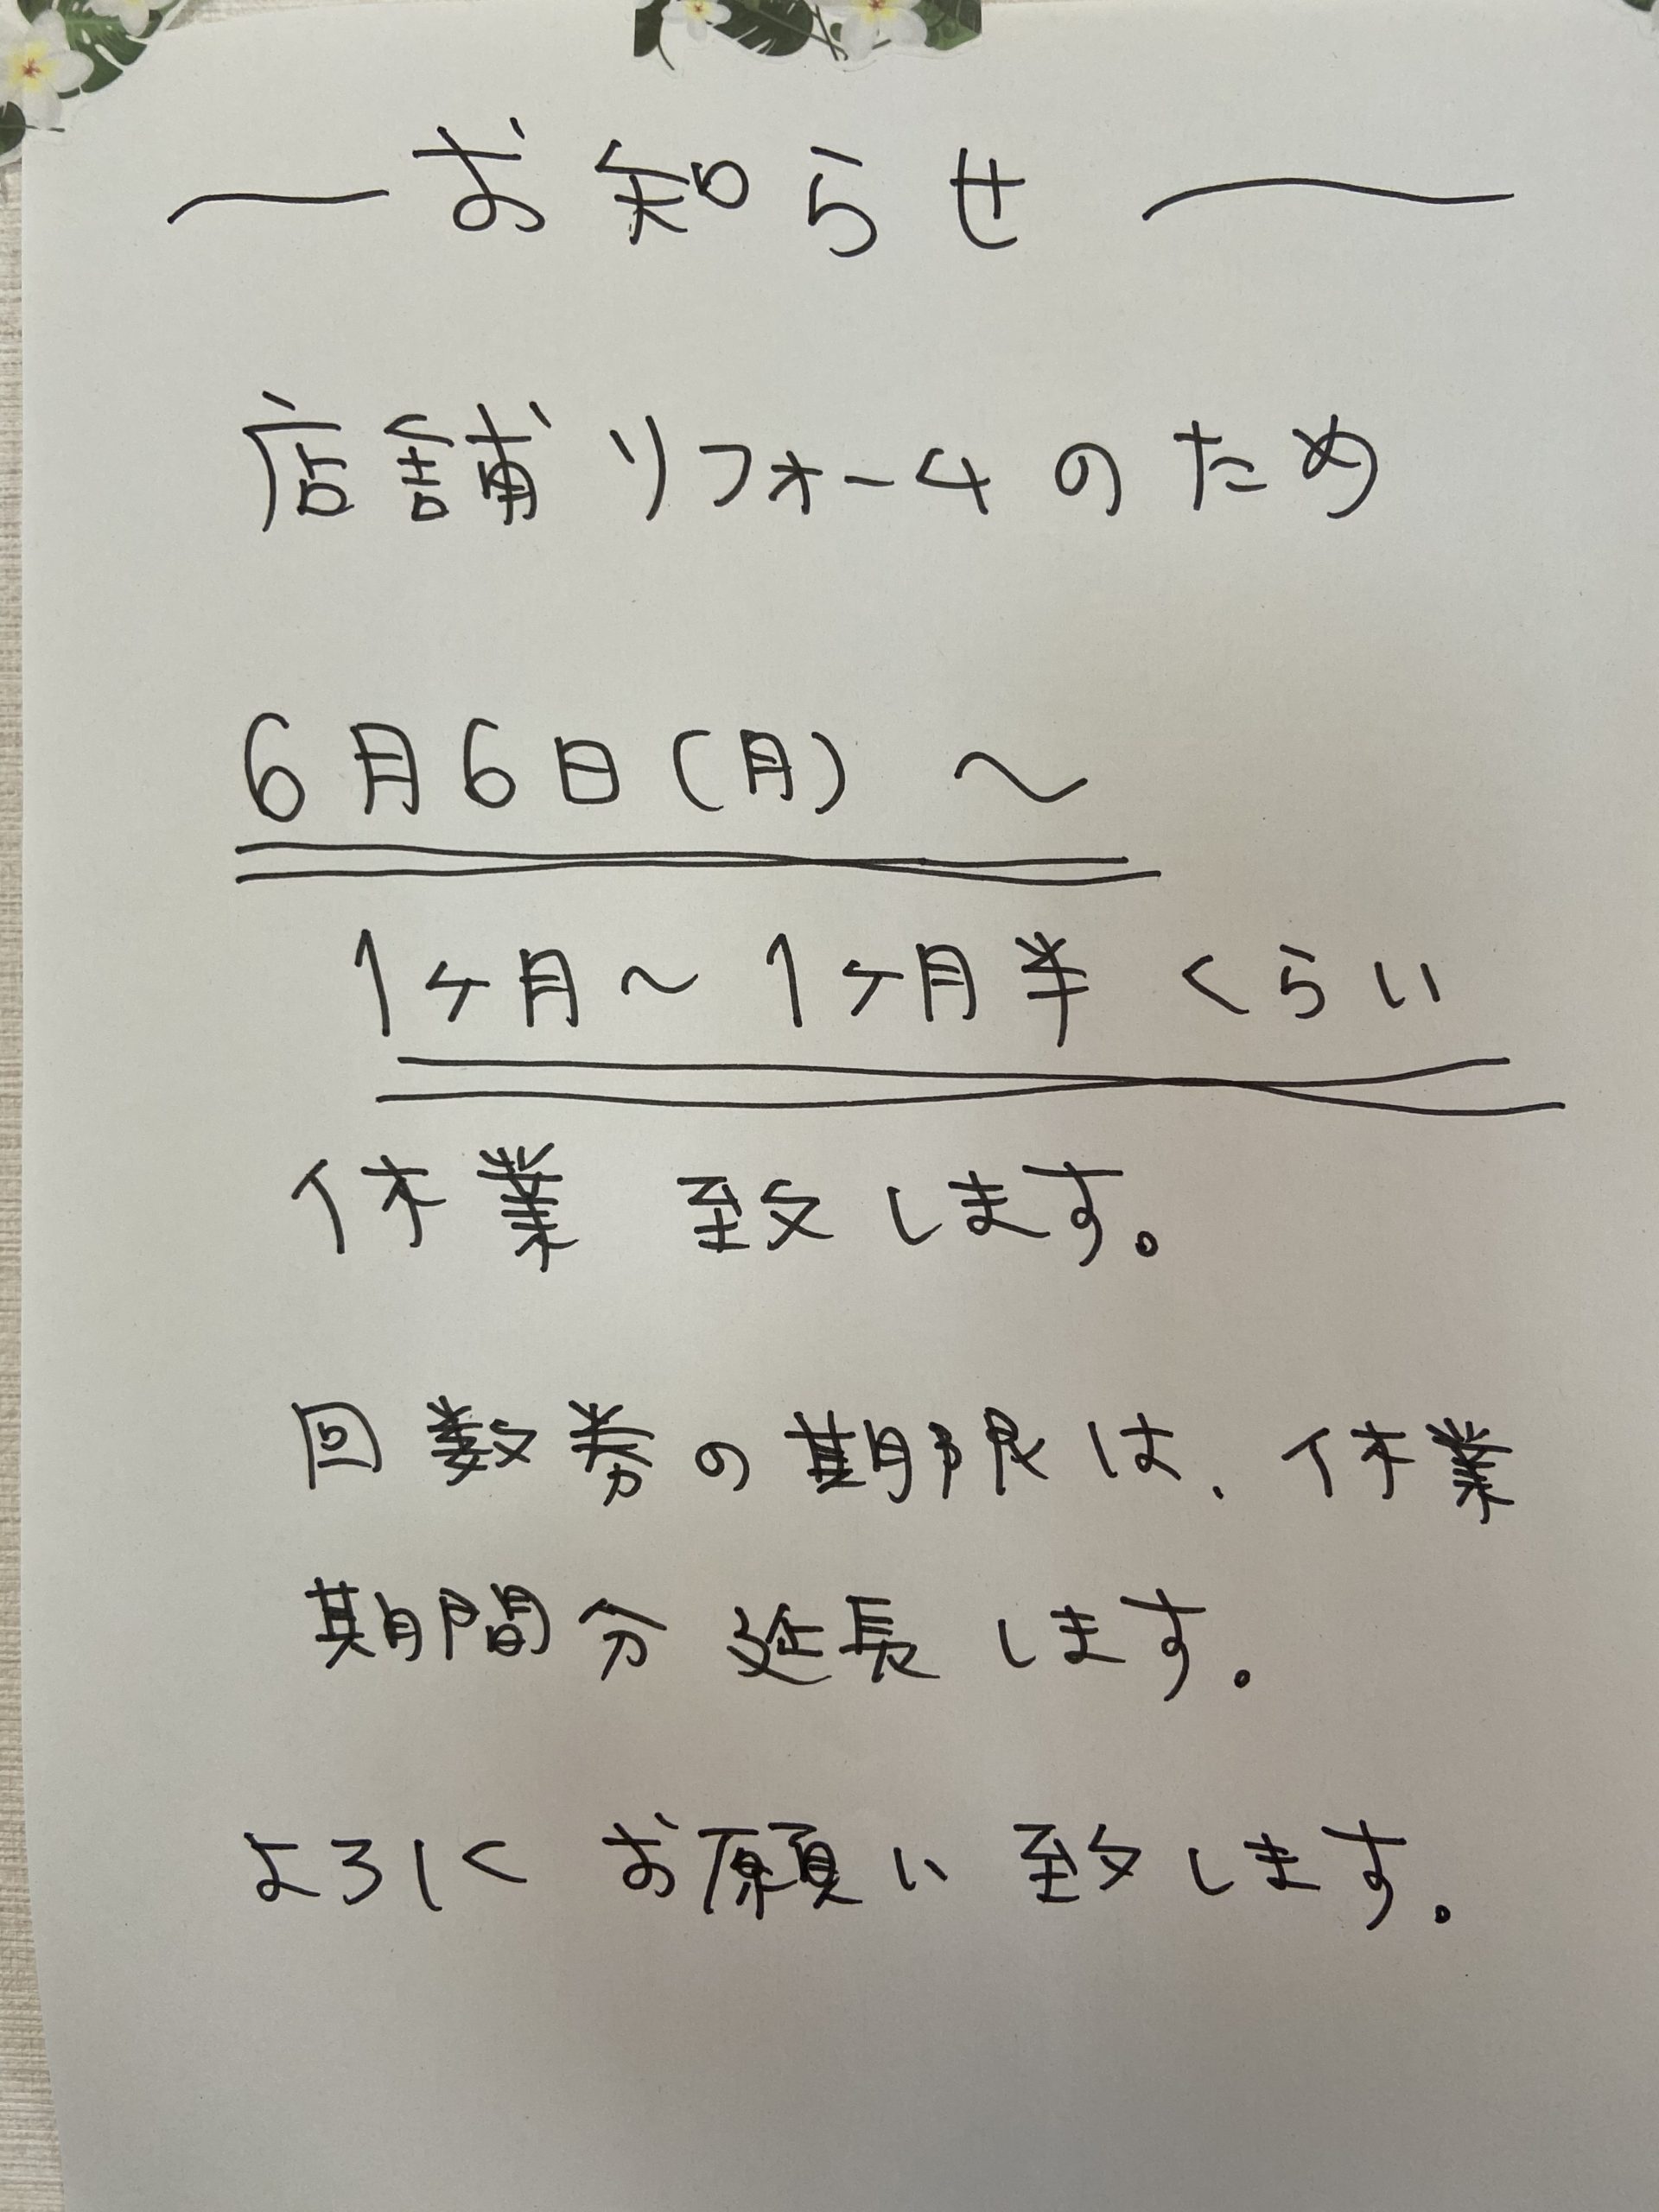 お知らせ
店舗リフォームのため
6月6日(月)～
1ヶ月～1ヶ月半くらい
休業致します。
回数券の期限は、休業
期間分延長します。
よろしくお願い致します。